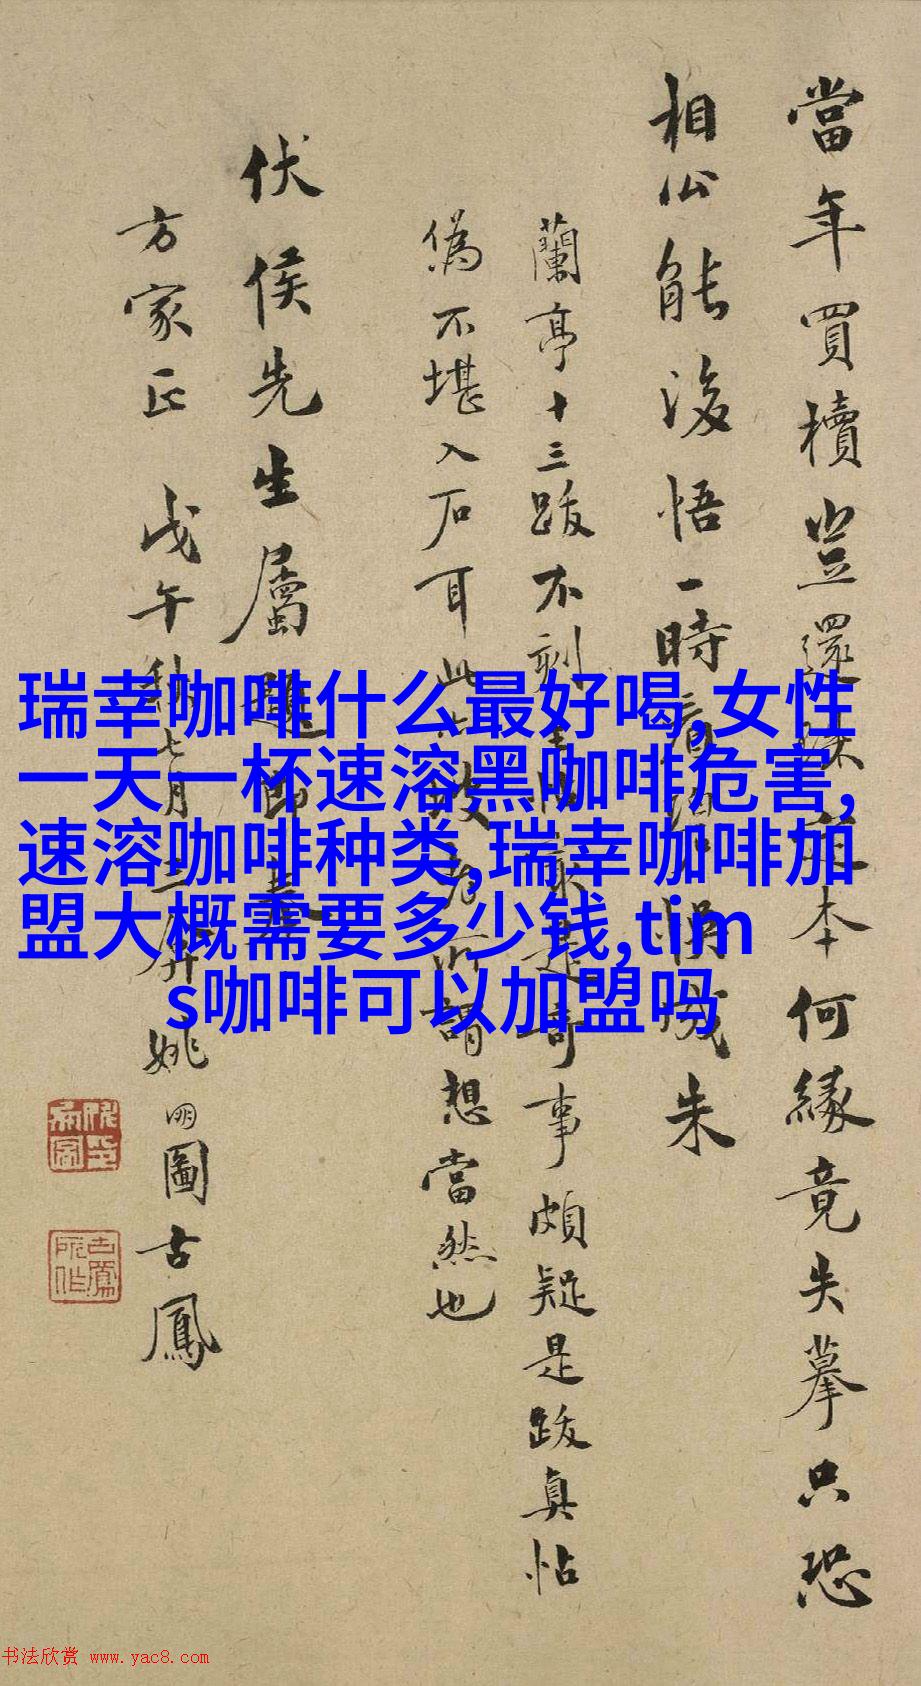 當年買櫝豈還珠
本何緣竟失摹只恐
相公能後悟一時
成朱
蘭亭十三跋不刻
事頗疑是跋真帖
偽不堪入石耳此
所謂想當然也
伏侯先生屬題即
方家正 戊午秋七月
姚明圖古鳳
瑞幸咖啡什么最好喝,女性
一天一杯速溶黑咖啡危害,
速溶咖啡种类,瑞幸咖啡加
盟大概需要多少钱,tim
s咖啡可以加盟吗
书法欣赏 www.yac8.com